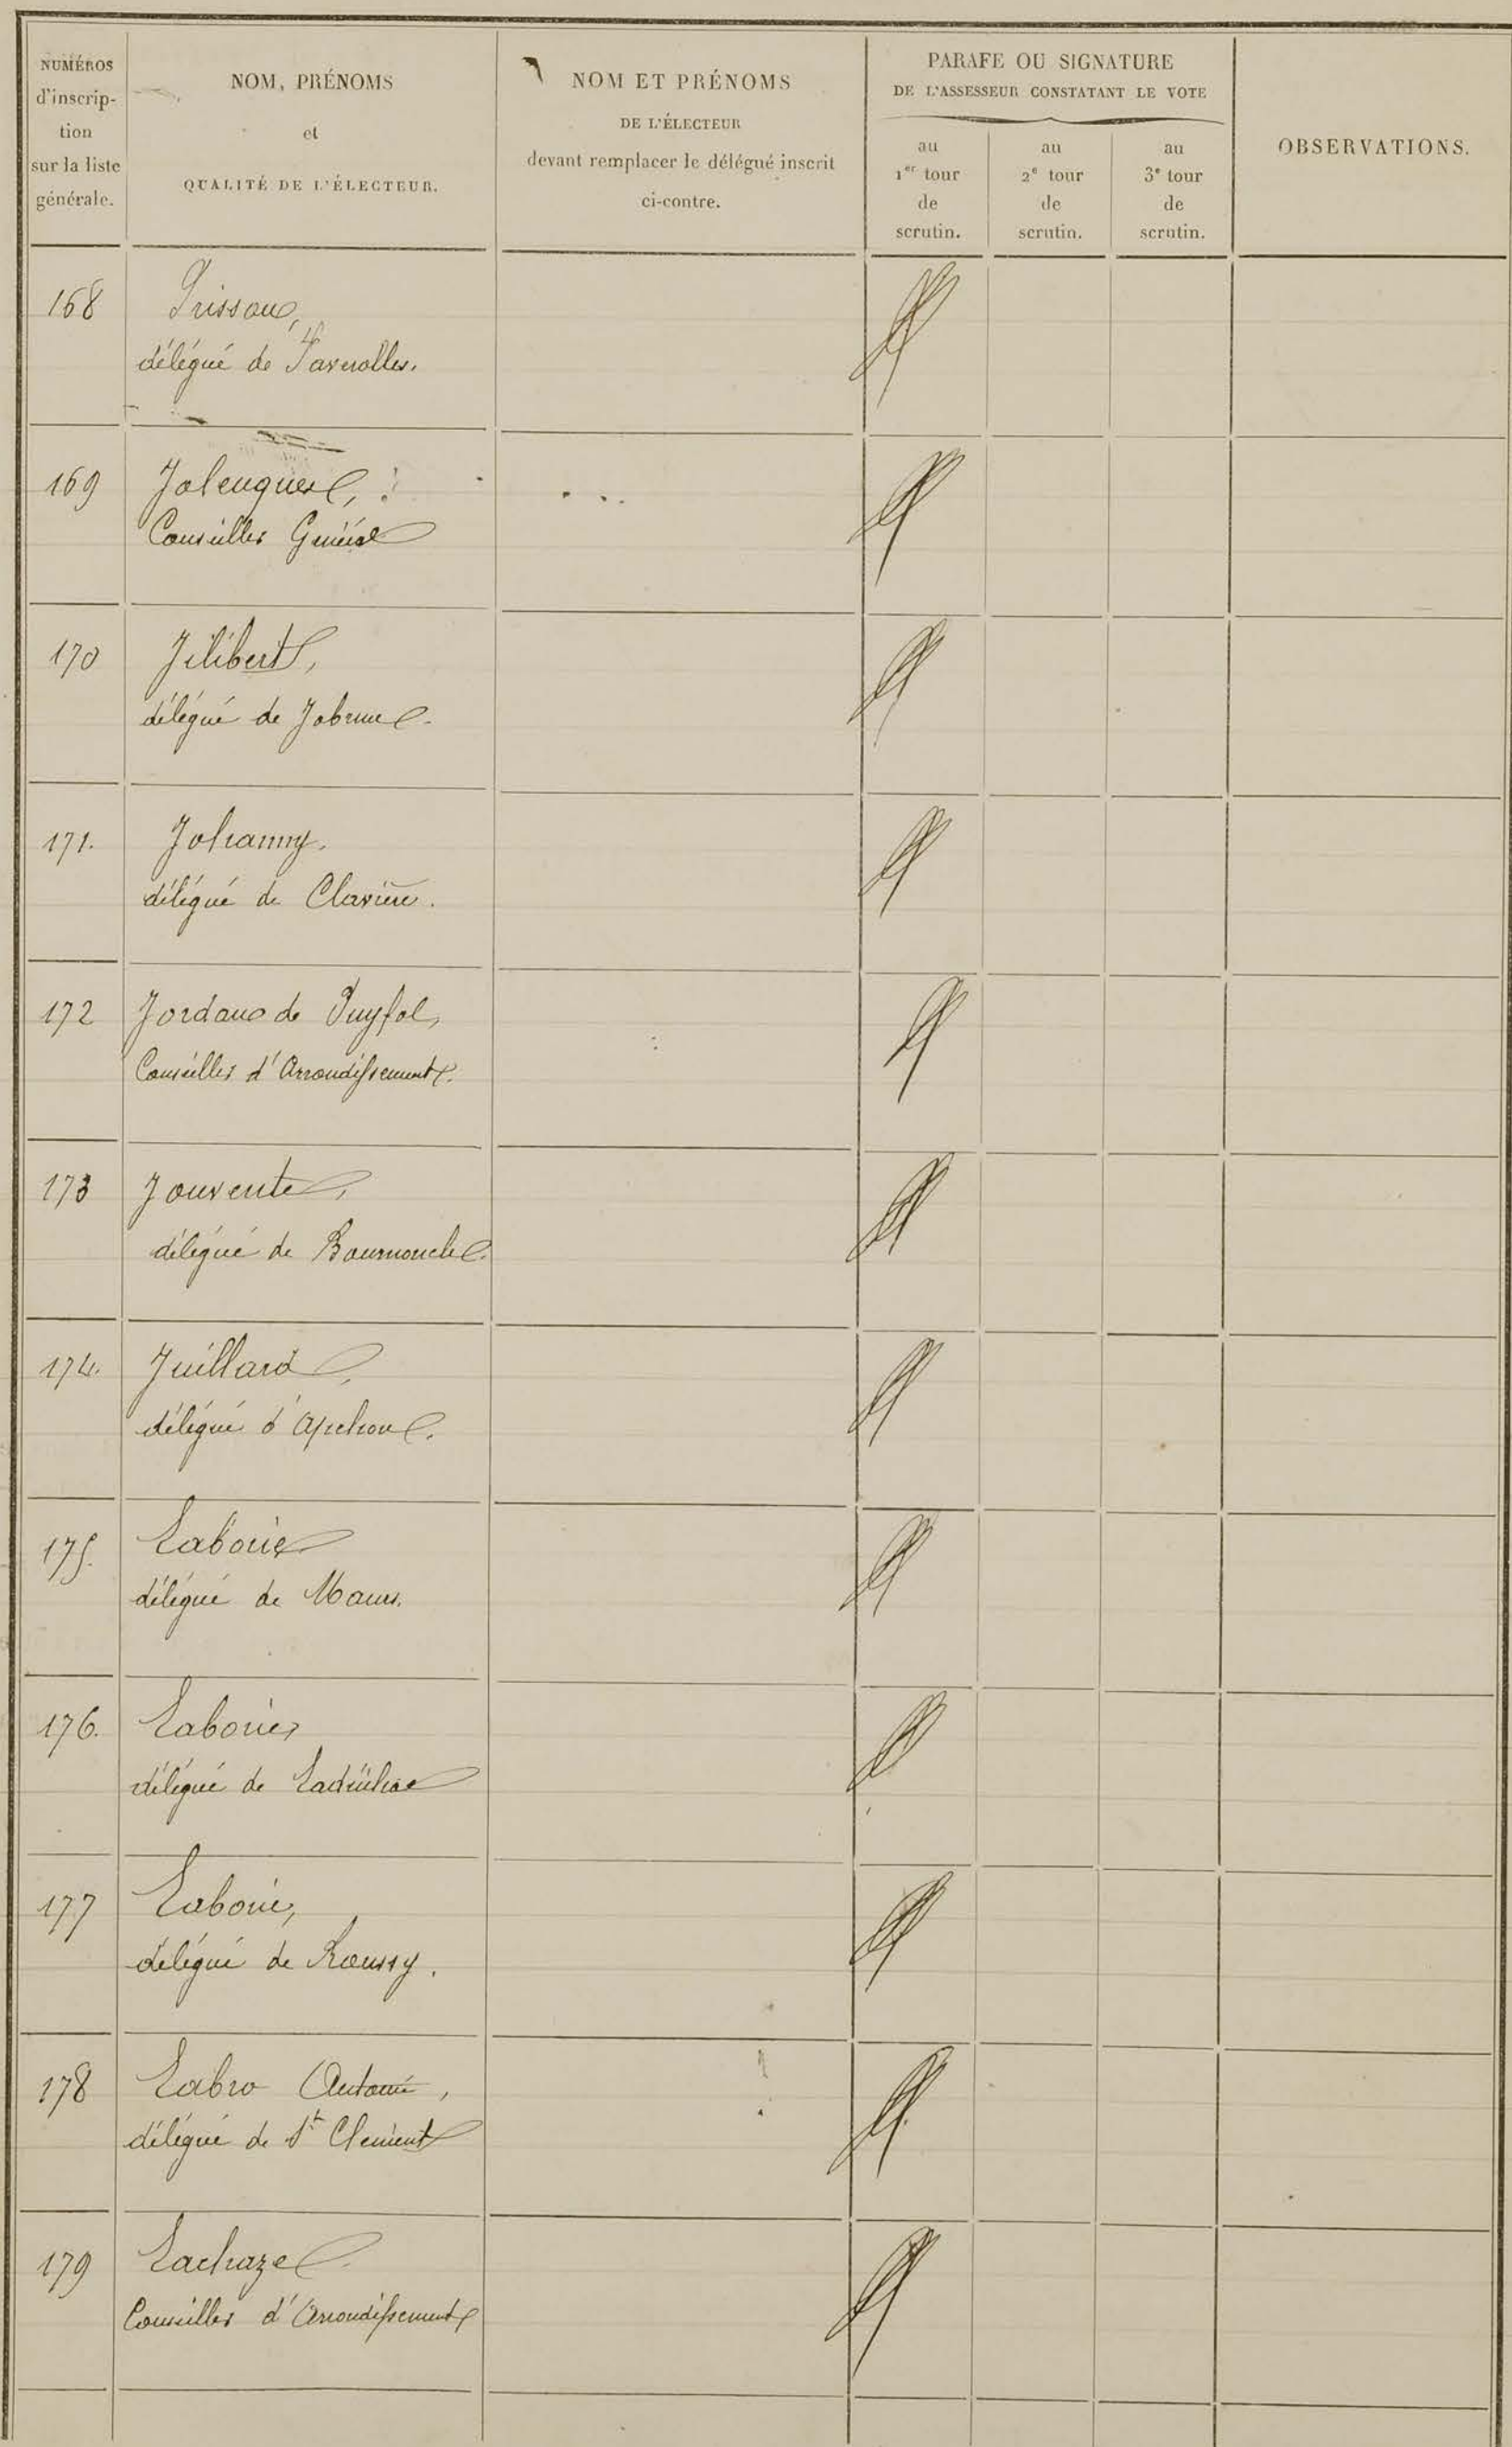 NUMÉROS
d'inscrip-
tion
sur la liste
générale.
NOM, PRÉNOMS
et
QUALITÉ DE L'ÉLECTEUR.
NOM ET PRÉNOMS
DE L'ÉLECTEUR
devant remplacer le délégué inscrit
ci-contre.
PARAFE OU SIGNATURE
DE L'ASSESSEUR CONSTATANT LE VOTE
au
1er tour
de
scrutin.
au
2e tour
de
scrutin.
au
3e tour
de
scrutin.
OBSERVATIONS.
168
délégué de
169 Jalenques,
Conseiller Général
170 Jilibert,
délégué de Jabrun
171. Johanny.
délégué de Clavière.
172 Jordan de Puyfol,
Conseiller d'Arrondissement.
173 Jouvente,
délégué de Bournoncle
174. Juillard,
délégué d'Apchon.
175. Laborie
délégué de Maurs.
176. Laborie,
délégué de Ladinhac
177 Laborie,
délégué de Roussy.
178 Labro Antoine,
délégué de St Clément
179 Lachaze
Conseiller d'Arrondissement